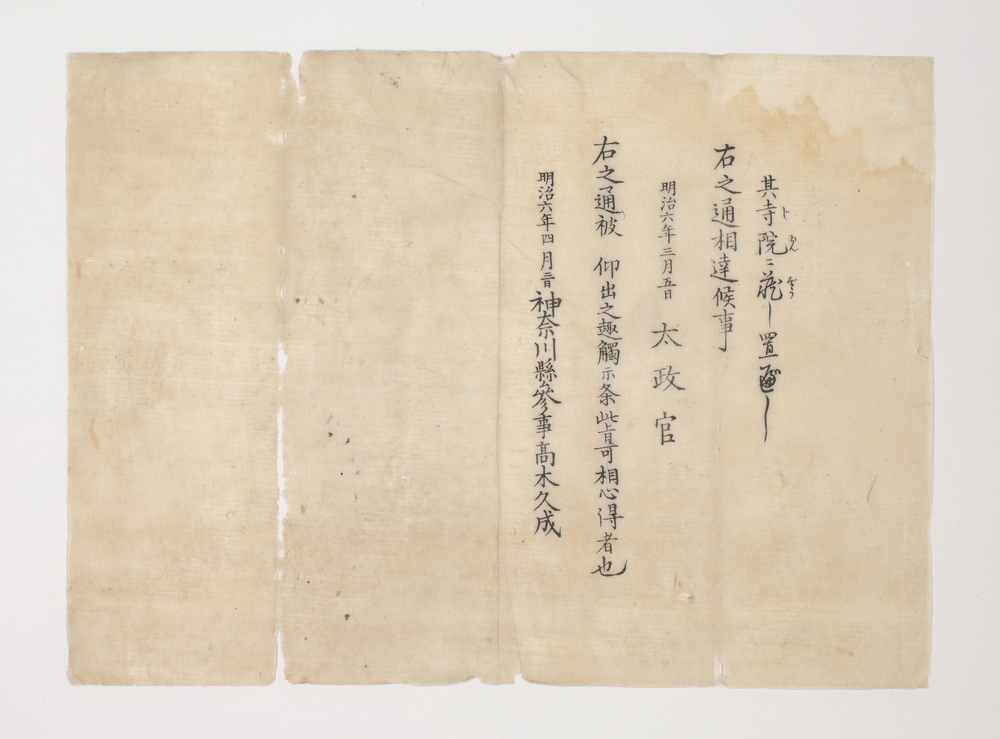 其寺院ニ蔵し置遍し
右之通相達候事
明治六年三月五日 太政官
右之通被 仰出之趣觸示条此旨可相心得者也
明治六年四月 日 神奈川縣參事高木久成